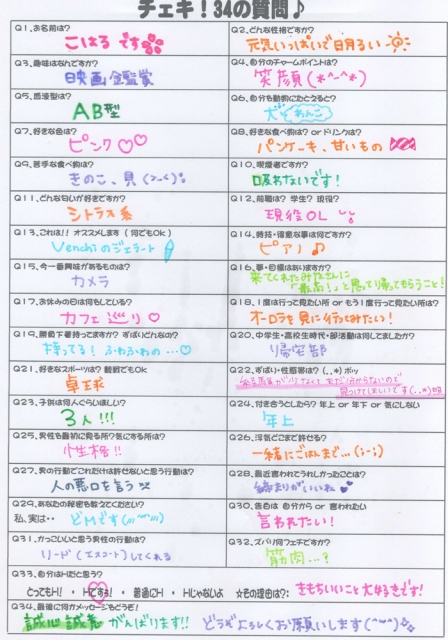 チェキ！34の質問♪
Q1.お名前は?
こはる です
Q2.どんな性格ですか?
元気いっぱいで明るい
Q3.趣味はなんですか?
映画鑑賞
Q4.自分のチャームポイントは?
笑顔(*^-^*)
Q5.血液型は?
AB型
Q6.自分を動物にたとえると?
犬 わんこ
Q7.好きな色は?
ピンク♡♡
Q8.好きな食べ物は? or ドリンクは?
パンケーキ、甘いもの
Q9.苦手な食べ物は?
きのこ、貝(>-<)
Q10.喫煙者ですか?
吸わないです!
Q11.どんな匂いが好きですか?
シトラス系
Q12.前職は? 学生? 現役?
現役OL
Q13.これは!! オススメします (何でもOk)
Venchiのジェラート
Q14.特技・得意な事は何ですか?
ピアノ♫
Q15.今一番興味があるものは?
カメラ
Q16.夢・目標はありますか?
来てくれたみなさんに
「最高!」と思って帰ってもらうこと!
Q17.お休みの日は何をしている?
カフェ巡り♡
Q18.1度は行って見たい所 or もう1度行って見たい所は?
オーロラを見に行ってみたい!
Q19.勝負下着持ってますか? ずばりどんなの?
持ってる! ふわふわの…♡
Q20.中学生・高校生時代・部活動は何してましたか?
帰宅部
Q21.好きなスポーツは? 観戦でもOK
卓球
Q22.ずばり・性感帯は? (..*)ポッ
経験が少なくてまだ分からないので
見つけてほしいです(..*)
Q23.子供は何人ぐらいほしい?
3人!!!
Q24.付き合うとしたら? 年上 or 年下 or 気にしない
年上
Q25.男性を最初に見る所?気にする所は?
性格!!
Q26.浮気どこまで許せる?
一緒にごはんまで…(;-;)
Q27.男の行動でこれだけは許せないと思う行動は?
人の悪口を言う
Q28.最近言われてうれしかったことは?
締まりがいいね
Q29.あなたの秘密を教えてください!
私、実は・・ どMです(///ー///)
Q30.告白は 自分から or 言われたい
言われたい!
Q31.かっこいいと思う男性の行動は?
リード(エスコート)してくれる
Q32.ズバリ何フェチですか?
筋肉…?
Q33.自分はHだと思う?
とってもH! ・ Hですっ! ・ 普通にH ・ Hじゃないよ ☆その理由は?: きもちいいこと大好きです!
Q34.最後に何かメッセージをどうぞ!
誠心誠意 がんばります!! どうぞよろしくお願いします(^ー^)